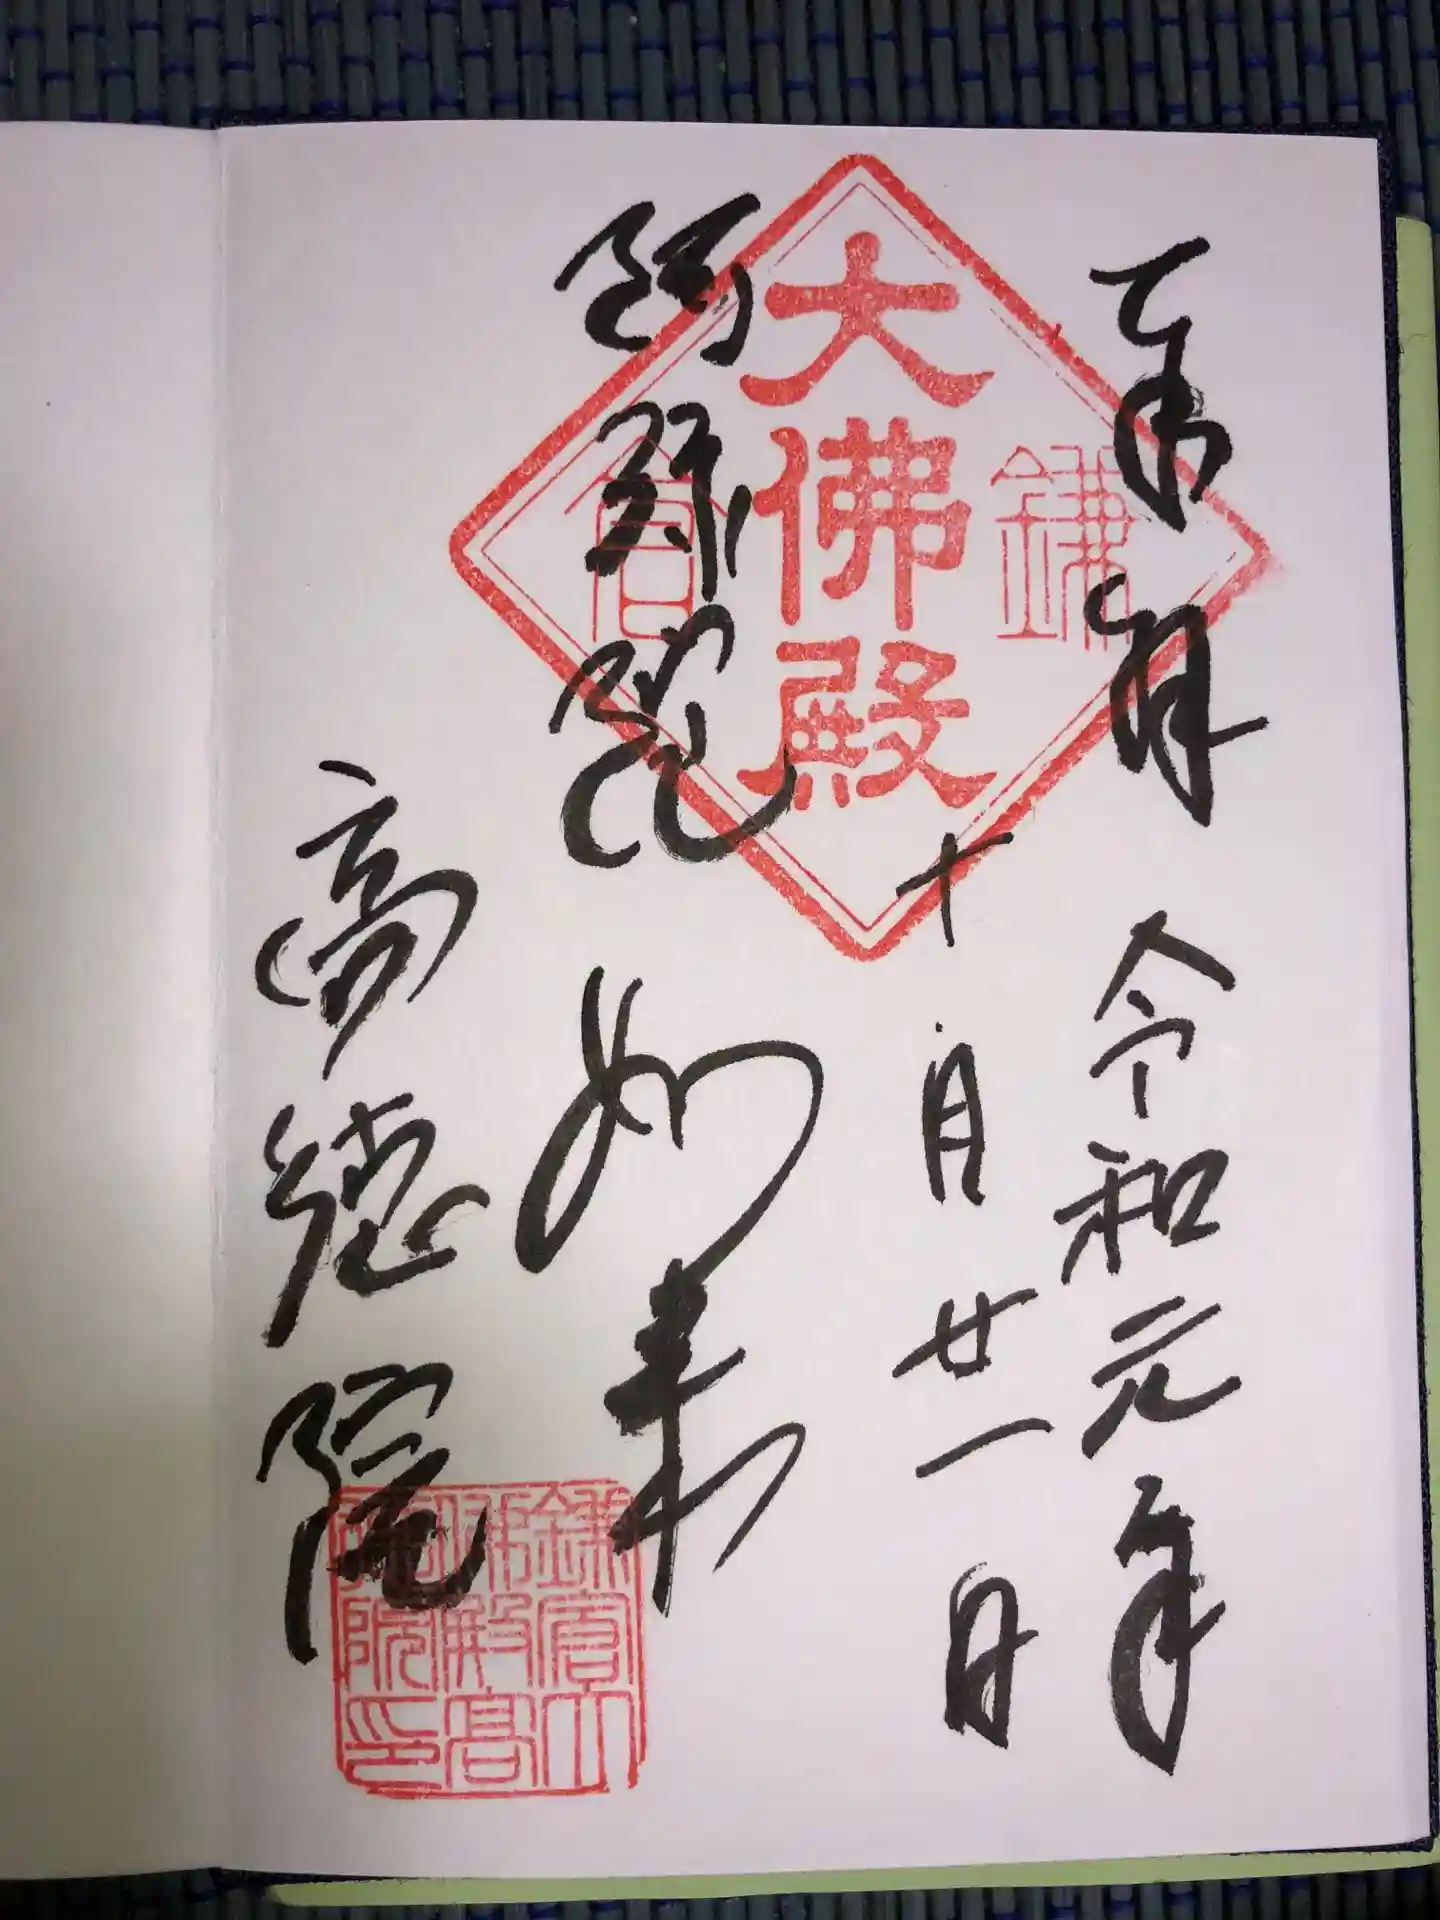 奉拝 令和元年
十月廿一日
阿弥陀如来
高徳院
大佛殿
鎌倉
鎌倉大
佛殿高
徳院印